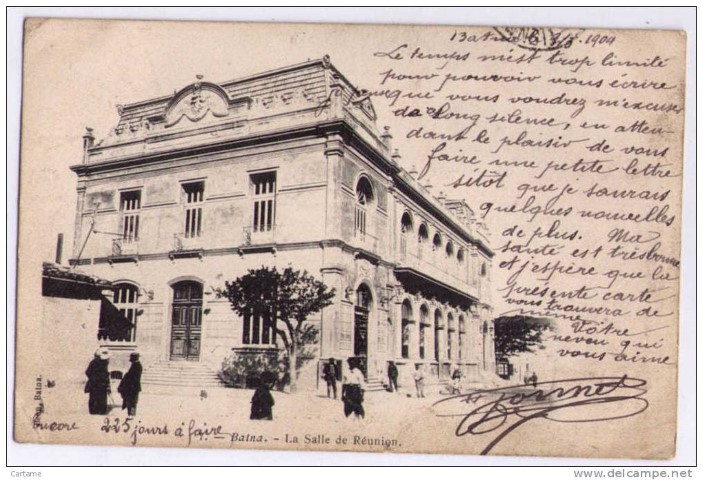 Batna le 3/8 1909
Le temps m'est trop limité
pour pouvoir vous écrire
que vous voudrez m'excuser
du long silence, en atten-
dant le plaisir de vous
faire une petite lettre
sitôt que je saurais
quelques nouvelles
de plus. Ma
santé est très bonne
et j'espère que la
présente carte
vous trouvera de
même
Vôtre
neveu qui
vous aime
encore 225 jours à faire
Batna. - La Salle de Réunion.
Batna.
Cartame
www.delcampe.net